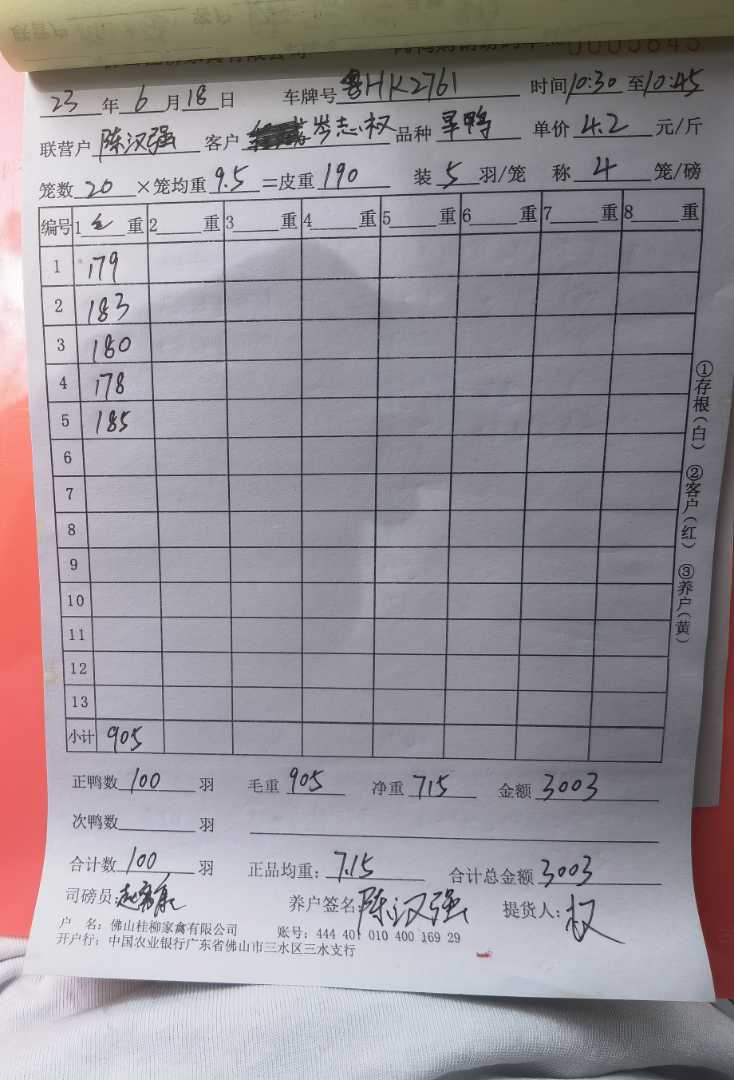 0005843
23 年 6 月 18 日 车牌号 粤HK2761 时间 10:30 至 10:45
联营户 陈汉强 客户 岑志权 品种 旱鸭 单价 4.2 元/斤
笼数 20 ×笼均重 9.5 =皮重 190 装 5 羽/笼 称 4 笼/磅
编号 1 毛 重 2 重 3 重 4 重 5 重 6 重 7 重 8 重
1 179
2 183
3 180
4 178
5 185
6
7
8
9
10
11
12
13
小计 905
①存根(白) ②客户(红) ③养户(黄)
正鸭数 100 羽 毛重 905 净重 715 金额 3003
次鸭数 羽
合计数 100 羽 正品均重: 7.15 合计总金额 3003
司磅员: 养户签名 陈汉强 提货人: 权
户 名: 佛山桂柳家禽有限公司 账号: 444 401 010 400 169 29
开户行: 中国农业银行广东省佛山市三水区三水支行